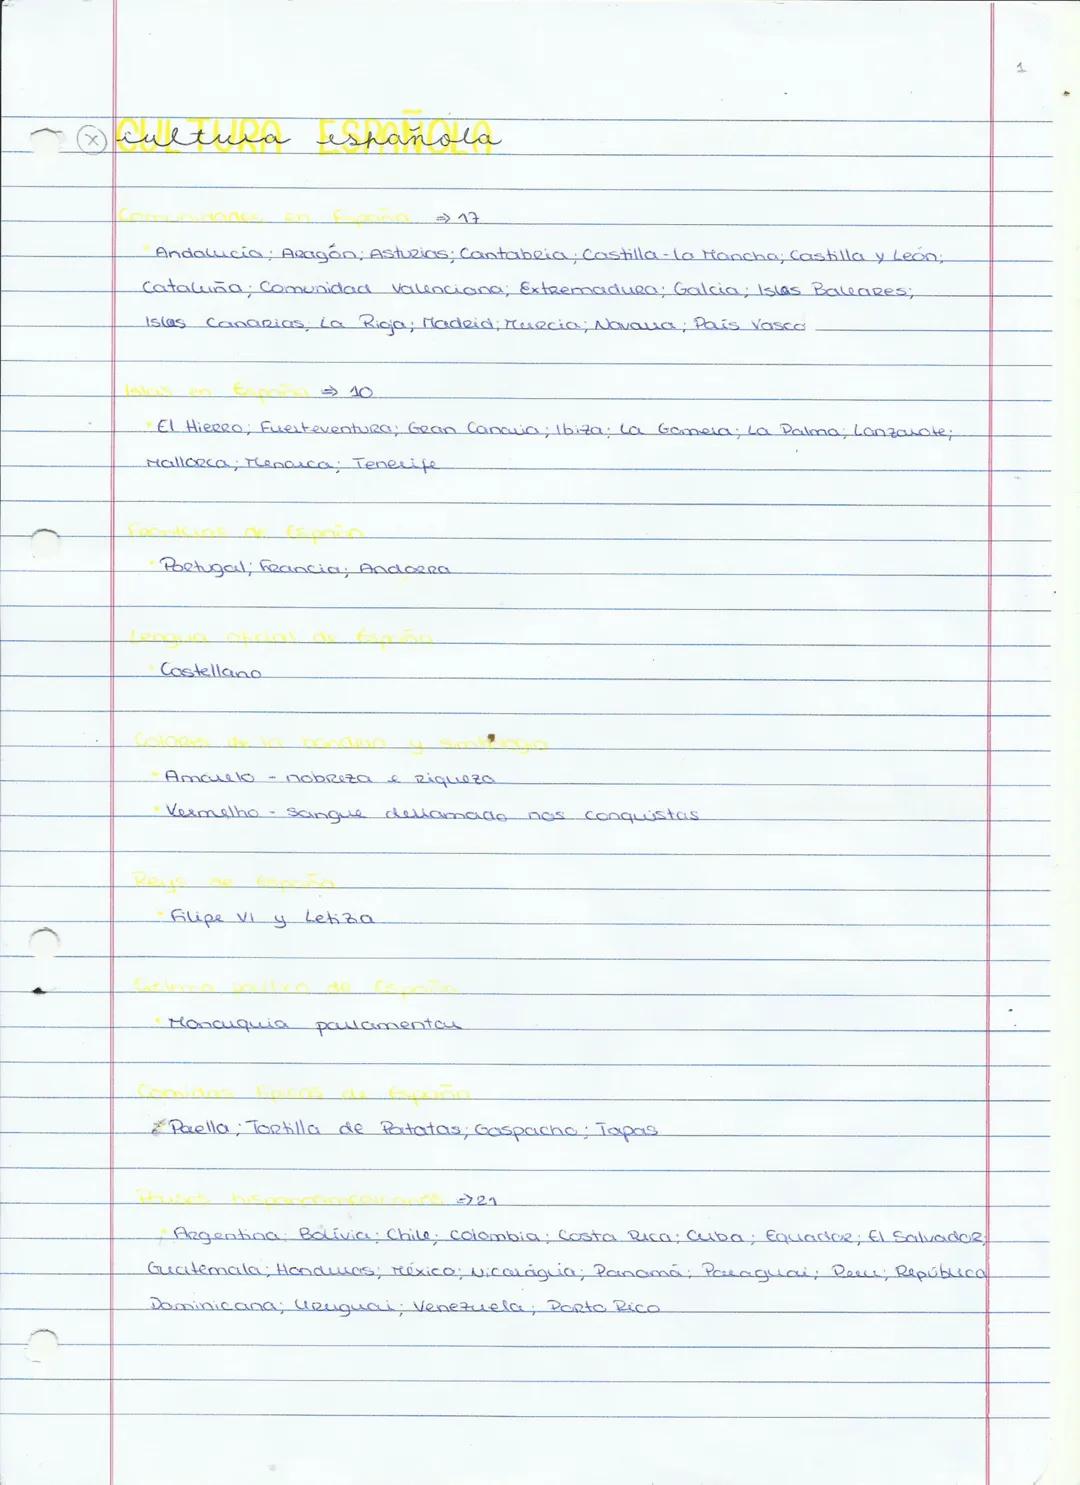 1
CULTURA ESPAÑOLA
x cultura española
Comunidades en España ⇒ 17
Andalucía; Aragón; Asturias; Cantabria; Castilla-la Mancha; Castilla y León;
Cataluña; Comunidad Valenciana; Extremadura; Galcia; Islas Baleares;
Islas Canarias; La Rioja; Madrid; Murcia; Navarra; País Vasco
Islas en España ⇒ 10
El Hierro; Fuerteventura; Gran Canaria; Ibiza; La Gomera; La Palma; Lanzarote;
Mallorca; Menorca; Tenerife
de España
Portugal; Francia; Andorra
Lengua oficial de España
Castellano
Colores de la bandera y
Amarelo - nobreza e riqueza
Vermelho - sangue derramado nos conquistas
Reys de España
Filipe VI y Letiza
de España
Monarquia parlamentar
Comidas típicas de España
Paella; Tortilla de Patatas; Gaspacho; Tapas
hispanoamericanos ⇒ 21
Argentina; Bolívia; Chile; Colombia; Costa Rica; Cuba; Equador; El Salvador;
Guatemala; Honduras; México; Nicarágua; Panamá; Paraguai; Peru; República
Dominicana; Uruguai; Venezuela; Porto Rico